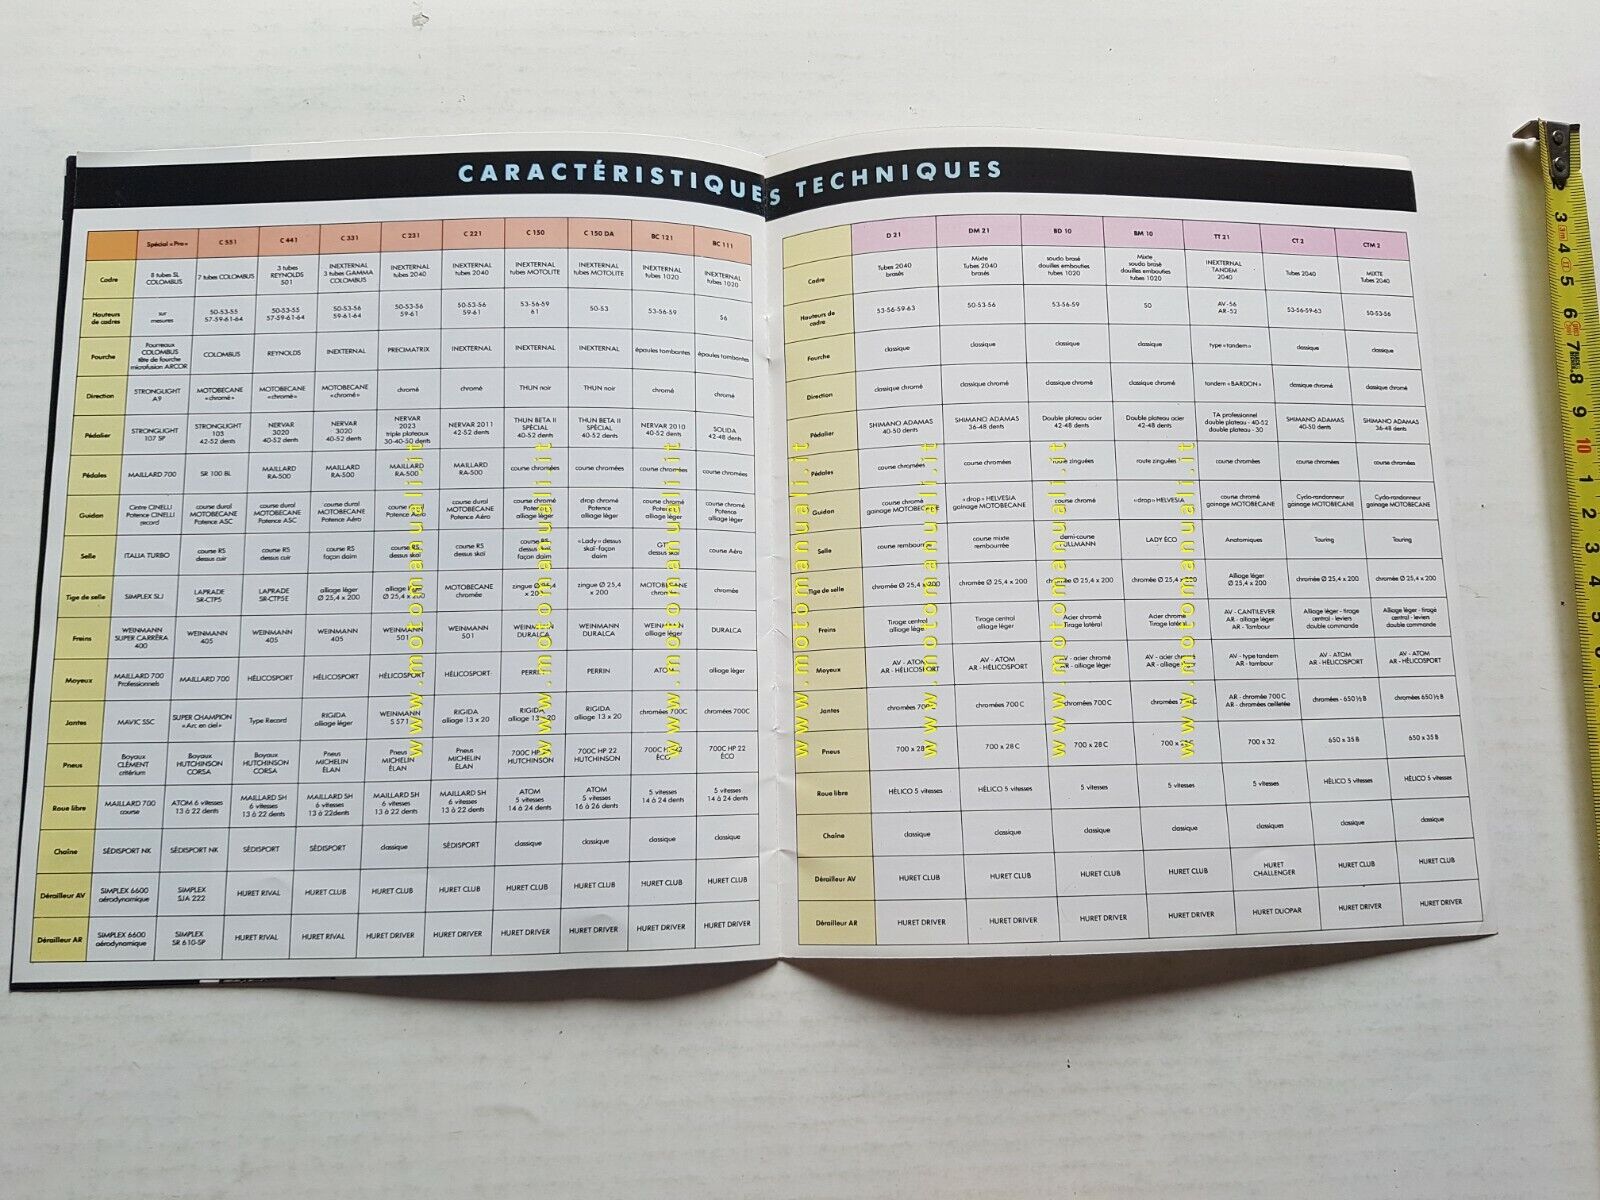 CARACTÉRISTIQUES TECHNIQUES
Spécial «Pro» C 551 C 441 C 331 C 231 C 221 C 150 C 150 DA BC 121 BC 111
Cadre 8 tubes SL COLOMBUS 7 tubes COLOMBUS 3 tubes REYNOLDS 501 INEXTERNAL 3 tubes GAMMA COLOMBUS INEXTERNAL tubes 2040 INEXTERNAL tubes 2040 INEXTERNAL tubes MOTOLITE INEXTERNAL tubes MOTOLITE INEXTERNAL tubes 1020 INEXTERNAL tubes 1020
Hauteurs de cadres sur mesures 50-53-55 57-59-61-64 50-53-55 57-59-61-64 50-53-56 59-61-64 50-53-56 59-61 50-53-56 59-61 53-56-59 61 50-53 53-56-59 56
Fourche Fourreaux COLOMBUS tête de fourche microfusion ARCOR COLOMBUS REYNOLDS INEXTERNAL PRECIMATRIX INEXTERNAL INEXTERNAL INEXTERNAL épaules tombantes épaules tombantes
Direction STRONGLIGHT A9 MOTOBECANE «chromé» MOTOBECANE «chromé» MOTOBECANE «chromé» chromé chromé THUN noir THUN noir chromé chromé
Pédalier STRONGLIGHT 107 SP STRONGLIGHT 105 42-52 dents NERVAR 3020 40-52 dents NERVAR 3020 40-52 dents NERVAR 2023 triple plateaux 30-40-50 dents NERVAR 2011 42-52 dents THUN BETA II SPÉCIAL 40-52 dents THUN BETA II SPÉCIAL 40-52 dents NERVAR 2010 40-52 dents SOLIDA 42-48 dents
Pédales MAILLARD 700 SR 100 BL MAILLARD RA-500 MAILLARD RA-500 MAILLARD RA-500 MAILLARD RA-500 course chromées course chromées course chromées course chromées
Guidon Cintre CINELLI Potence CINELLI record course dural MOTOBECANE Potence ASC course dural MOTOBECANE Potence ASC course dural MOTOBECANE Potence Aéro course dural MOTOBECANE Potence Aéro course dural MOTOBECANE Potence Aéro course chromé Potence alliage léger drop chromé Potence alliage léger course chromé Potence alliage léger course chromé Potence alliage léger
Selle ITALIA TURBO course RS dessus cuir course RS dessus cuir course RS façon daim course RS dessus skaï course RS dessus skaï course RS dessus skaï façon daim «Lady» dessus skaï-façon daim dessus skaï course Aéro
Tige de selle SIMPLEX SLJ LAPRADE SR-CTP5 LAPRADE SR-CTP5E alliage léger Ø 25,4 x 200 alliage léger Ø 25,4 x 200 MOTOBECANE chromée zingue Ø 25,4 x 200 zingue Ø 25,4 x 200 MOTOBECANE chromée chromée
Freins WEINMANN SUPER CARRÈRA 400 WEINMANN 405 WEINMANN 405 WEINMANN 405 WEINMANN 501 WEINMANN 501 WEINMANN DURALCA WEINMANN DURALCA WEINMANN alliage léger DURALCA
Moyeux MAILLARD 700 Professionnels MAILLARD 700 HÉLICOSPORT HÉLICOSPORT HÉLICOSPORT HÉLICOSPORT PERRIN PERRIN ATOM alliage léger
Jantes MAVIC SSC SUPER CHAMPION «Arc en ciel» Type Record RIGIDA alliage léger WEINMANN S 571 RIGIDA alliage 13 x 20 RIGIDA alliage 13 x 20 RIGIDA alliage 13 x 20 chromées 700C chromées 700C
Pneus Boyaux CLÉMENT critérium Boyaux HUTCHINSON CORSA Boyaux HUTCHINSON CORSA Pneus MICHELIN ÉLAN Pneus MICHELIN ÉLAN Pneus MICHELIN ÉLAN 700C HP 22 HUTCHINSON 700C HP 22 HUTCHINSON 700C HP 22 ÉCO 700C HP 22 ÉCO
Roue libre MAILLARD 700 course ATOM 6 vitesses 13 à 22 dents MAILLARD SH 6 vitesses 13 à 22 dents MAILLARD SH 6 vitesses 13 à 22dents MAILLARD SH 6 vitesses 13 à 22 dents MAILLARD SH 6 vitesses 13 à 22 dents ATOM 5 vitesses 14 à 24 dents ATOM 5 vitesses 16 à 26 dents 5 vitesses 14 à 24 dents 5 vitesses 14 à 24 dents
Chaîne SÉDISPORT NK SÉDISPORT NK SÉDISPORT SÉDISPORT classique SÉDISPORT classique classique classique classique
Dérailleur AV SIMPLEX 6600 aérodynamique SIMPLEX SJA 222 HURET RIVAL HURET CLUB HURET CLUB HURET CLUB HURET CLUB HURET CLUB HURET CLUB HURET CLUB
Dérailleur AR SIMPLEX 6600 aérodynamique SIMPLEX SR 610-SP HURET RIVAL HURET RIVAL HURET DRIVER HURET DRIVER HURET DRIVER HURET DRIVER HURET DRIVER HURET DRIVER
D 21 DM 21 BD 10 BM 10 TT 21 CT 2 CTM 2
Cadre Tubes 2040 brasés Mixte Tubes 2040 brasés soudo brasé douilles embouties tubes 1020 Mixte soudo brasé douilles embouties tubes 1020 INEXTERNAL TANDEM 2040 Tubes 2040 MIXTE Tubes 2040
Hauteurs de cadre 53-56-59-63 50-53-56 53-56-59 50 AV-56 AR-52 53-56-59-63 50-53-56
Fourche classique classique classique classique type «tandem» classique classique
Direction classique chromé classique chromé classique chromé classique chromé tandem «BARDON» classique chromé classique chromé
Pédalier SHIMANO ADAMAS 40-50 dents SHIMANO ADAMAS 36-48 dents Double plateau acier 42-48 dents Double plateau acier 42-48 dents TA professionnel double plateau - 40-52 double plateau - 30 SHIMANO ADAMAS 40-50 dents SHIMANO ADAMAS 36-48 dents
Pédales course chromées course chromées route zinguées route zinguées course chromées course chromées course chromées
Guidon course chromé gainage MOTOBECANE «drop» HELVESIA gainage MOTOBECANE course chromé «drop» HELVESIA course chromé gainage MOTOBECANE Cyclo-randonneur gainage MOTOBECANE Cyclo-randonneur gainage MOTOBECANE
Selle course rembourrée course mixte rembourrée demi-course LADY ÉCO Anatomiques Touring Touring
Tige de selle chromée Ø 25,4 x 200 chromée Ø 25,4 x 200 chromée Ø 25,4 x 200 chromée Ø 25,4 x 200 Alliage léger Ø 25,4 x 200 chromée Ø 25,4 x 200 chromée Ø 25,4 x 200
Freins Tirage central alliage léger Tirage central alliage léger Acier chromé Tirage latéral Acier chromé Tirage latéral AV - CANTILEVER AR - alliage léger AR - Tambour Alliage léger - tirage central - leviers double commande Alliage léger - tirage central - leviers double commande
Moyeux AV - ATOM AR - HÉLICOSPORT AV - ATOM AR - HÉLICOSPORT AV - acier chromé AR - alliage léger AV - acier chromé AR - alliage léger AV - type tandem AR - tambour AV - ATOM AR - HÉLICOSPORT AV - ATOM AR - HÉLICOSPORT
Jantes chromées 700C chromées 700 C chromées 700C chromées 700C AR - chromée 700 C AR - chromées œilletée chromées - 650 ½ B chromées 650 ½ B
Pneus 700 x 28 C 700 x 28 C 700 x 28 C 700 x 28 C 700 x 32 650 x 35 B 650 x 35 B
Roue libre HÉLICO 5 vitesses HÉLICO 5 vitesses 5 vitesses 5 vitesses 5 vitesses HÉLICO 5 vitesses HÉLICO 5 vitesses
Chaîne classique classique classique classique classiques classique classique
Dérailleur AV HURET CLUB HURET CLUB HURET CLUB HURET CLUB HURET CHALLENGER HURET CLUB HURET CLUB
Dérailleur AR HURET DRIVER HURET DRIVER HURET DRIVER HURET DRIVER HURET DUOPAR HURET DRIVER HURET DRIVER
www.motomanuali.it
www.motomanuali.it
www.motomanuali.it
www.motomanuali.it
www.motomanuali.it
www.motomanuali.it
www.motomanuali.it
2 3 3m 4 5 6 7 8 9 10 1 2 3 4 5